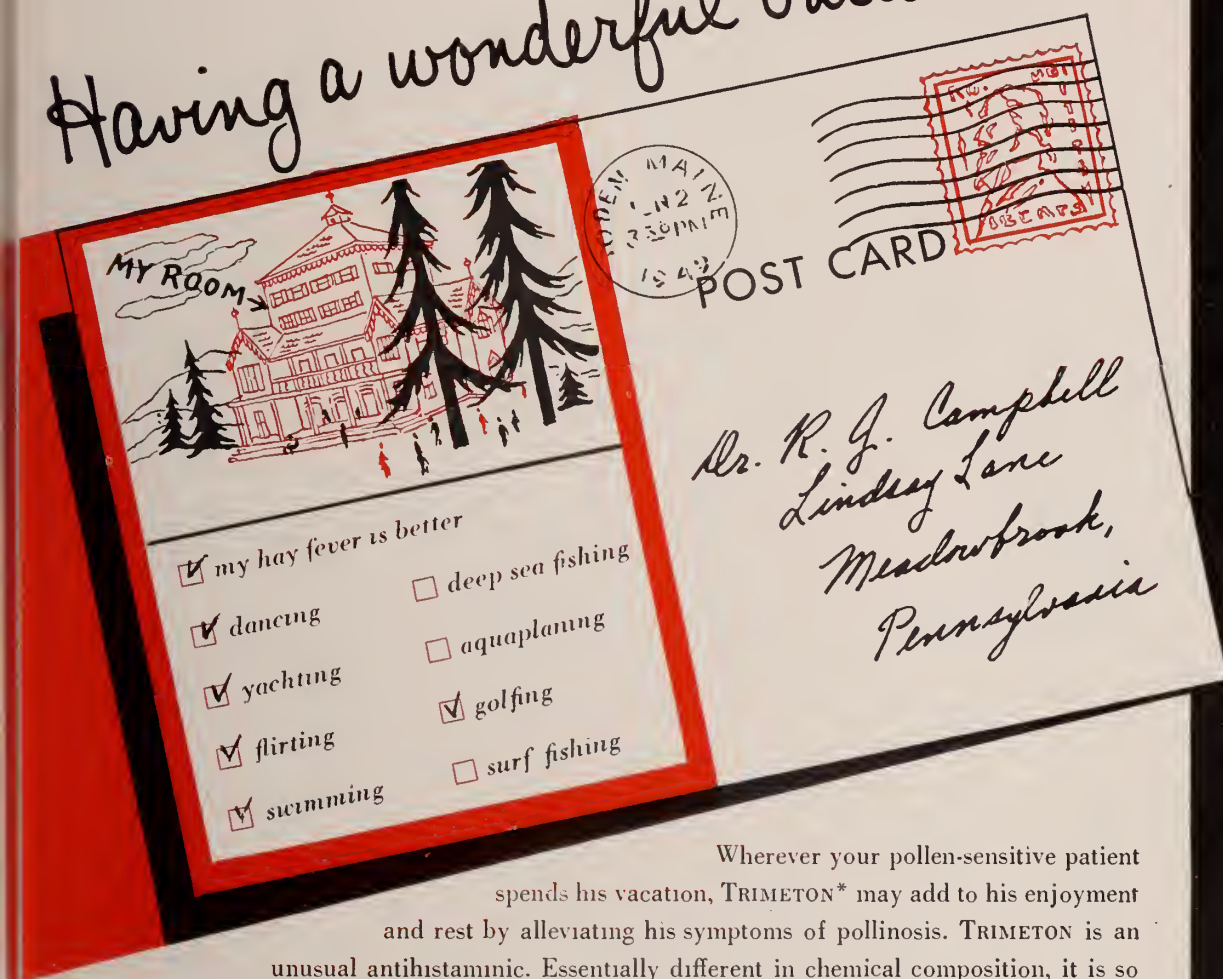 Having a wonderful
MY ROOM
MAINE
2
PM
1949
POST CARD
Dr. R. G. Campbell
Lindsay Lane
Meadowbrook,
Pennsylvania
my hay fever is better
dancing
yachting
flirting
swimming
deep sea fishing
aquaplaning
golfing
surf fishing
Wherever your pollen-sensitive patient
spends his vacation, TRIMETON* may add to his enjoyment
and rest by alleviating his symptoms of pollinosis. TRIMETON is an
unusual antihistaminic. Essentially different in chemical composition, it is so